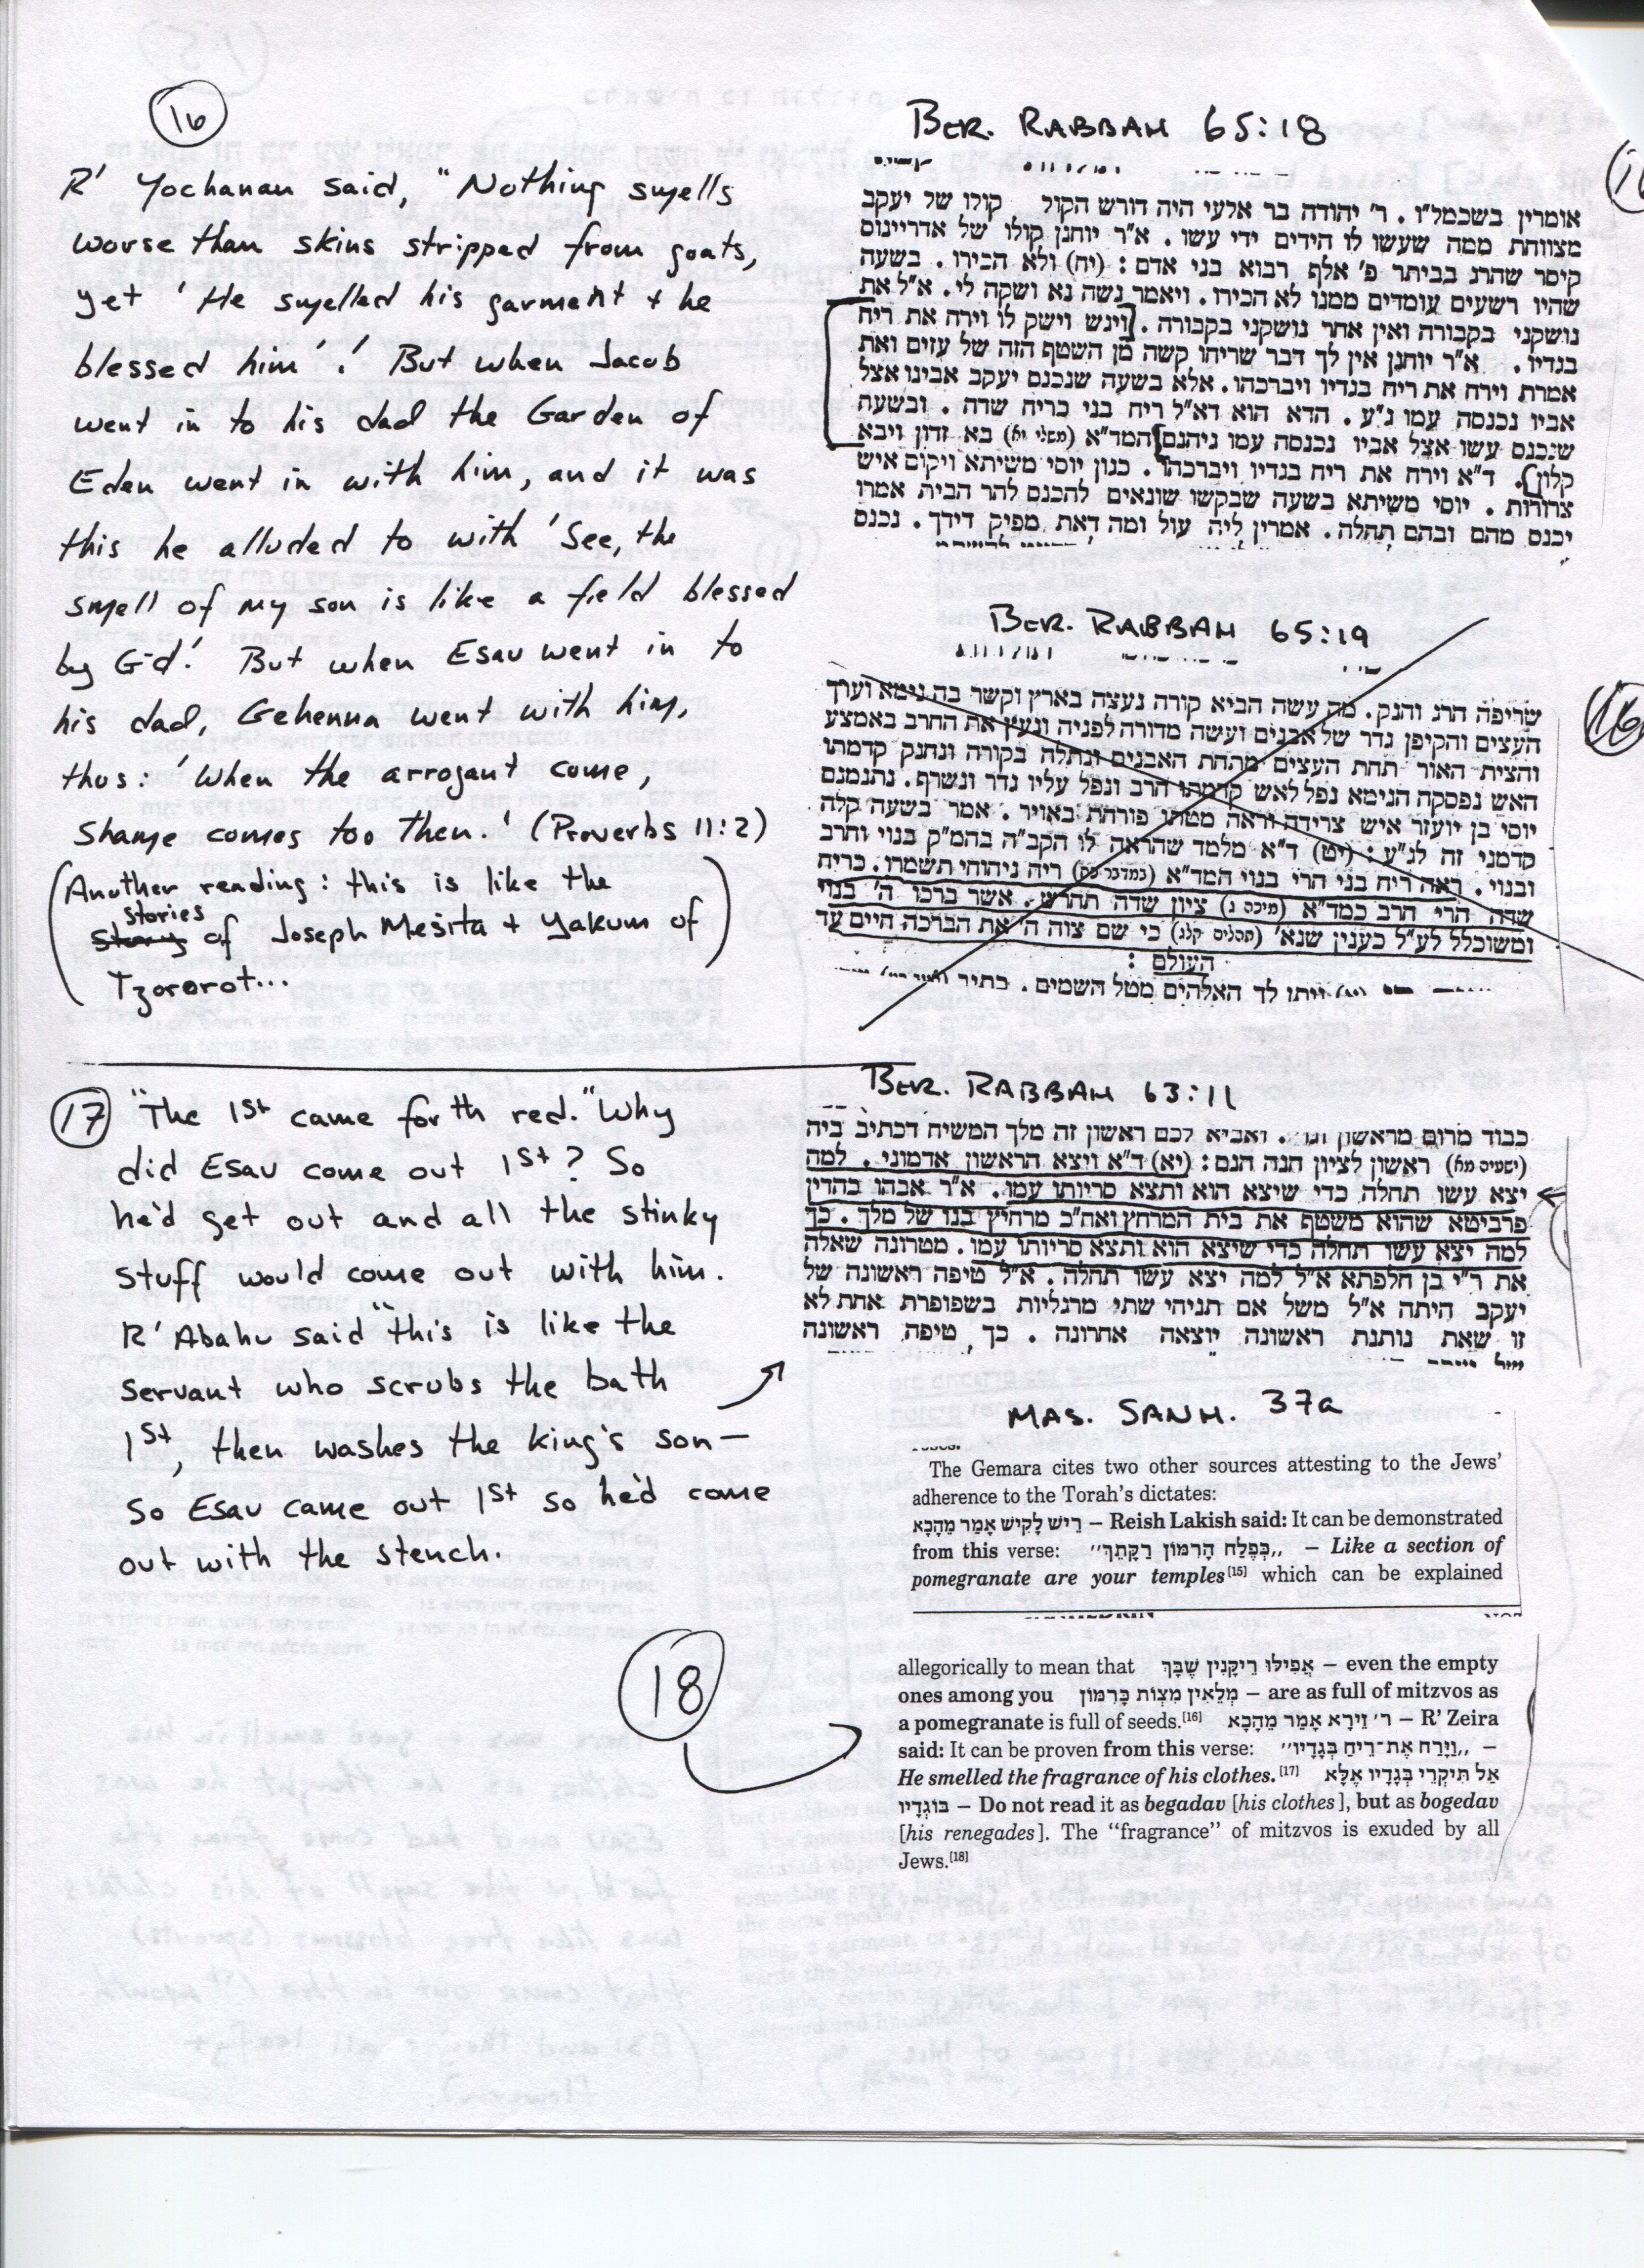 16
R' Yochanan said, "Nothing smells
worse than skins stripped from goats,
yet 'He smelled his garment + he
blessed him'! But when Jacob
went in to his dad the Garden of
Eden went in with him, and it was
this he alluded to with 'See, the
smell of my son is like a field blessed
by G-d.' But when Esau went in to
his dad, Gehenna went with him,
thus: 'When the arrogant come,
shame comes too then.' (Proverbs 11:2)
(Another reading: this is like the
stories of Joseph Mesita + Yakum of
Tzororot...)
BER. RABBAH 65:18
אומרין בשכמל"ו. ר' יהודה בר אלעי היה דורש הקול קולו של יעקב
מצווחת ממה שעשו לו הידים ידי עשו. א"ר יוחנן קולו של אדריינוס
קיסר שהרג בביתר פ' אלף רבוא בני אדם: (יח) ולא הכירו. בשעה
שהיו רשעים עומדים ממנו לא הכירו. ויאמר גשה נא ושקה לי. א"ל את
נושקני בקבורה ואין אחר נושקני בקבורה. [ויגש וישק לו וירח את ריח
בגדיו. א"ר יוחנן אין לך דבר שריחו קשה מן השטף הזה של עזים ואת
אמרת וירח את ריח בגדיו ויברכהו. אלא בשעה שנכנס יעקב אבינו אצל
אביו נכנסה עמו ג"ע. הדא הוא דא"ל ריח בני כריח שדה. ובשעה
שנכנס עשו אצל אביו נכנסה עמו גיהנם [המד"א (משלי יא) בא זדון ויבא
קלון]. ד"א וירח את ריח בגדיו ויברכהו. כגון יוסי משיתא ויקום איש
צרורות. יוסי משיתא בשעה שבקשו שונאים להכנס להר הבית אמרו
יכנס מהם ובהם תחלה. אמרין ליה עול ומה דאת מפיק דידך. נכנס
BER. RABBAH 65:19
16
שריפה הרג והנק. מה עשה הביא קורה נעצה בארץ וקשר בה נימא וערך
העצים והקיפן גדר של אבנים ועשה מדורה לפניה ונעץ את החרב באמצע
והצית האור תחת העצים מתחת האבנים ונתלה בקורה ונחנק קדמתו
האש נפסקה הנימא נפל לאש קדמתו חרב ונפל עליו גדר ונשרף. נתנמנם
יוסי בן יועזר איש צרידה וראה מטתו פורחת באויר. אמר בשעה קלה
קדמני זה לג"ע: (יט) ד"א מלמד שהראה לו הקב"ה בהמ"ק בנוי וחרב
ובנוי. ראה ריח בני הרי בנוי המד"א (במדבר כח) ריח ניחוחי תשמרו. כריח
שדה הרי חרב כמד"א (מיכה ג) ציון שדה תחרש. אשר ברכו ה' בנוי
ומשוכלל לע"ל כענין שנא' (תהלים קלג) כי שם צוה ה' את הברכה חיים עד
העולם:
ויתן לך האלהים מטל השמים.
17
"The 1st came forth red." Why
did Esau come out 1st? So
he'd get out and all the stinky
stuff would come out with him.
R' Abahu said "this is like the
servant who scrubs the bath
1st, then washes the king's son—
so Esau came out 1st so he'd come
out with the stench.
BER. RABBAH 63:11
כבוד מרום מראשון וגו'. ואביא לכם ראשון זה מלך המשיח דכתיב ביה
(ישעיה מא) ראשון לציון הנה הנם: (יא) ד"א ויצא הראשון אדמוני. למה
יצא עשו תחלה כדי שיצא הוא ותצא סריותו עמו. א"ר אבהו כהדין
פרביטא שהוא משטף את בית המרחץ ואח"כ מרחיץ בנו של מלך. כך
למה יצא עשו תחלה כדי שיצא הוא ותצא סריותו עמו. מטרונה שאלה
את ר"י בן חלפתא א"ל למה יצא עשו תחלה. א"ל טיפה ראשונה של
יעקב היתה א"ל משל אם תניחי שתי מרגליות בשפופרת אחת לא
זו שאת נותנת ראשונה יוצאה אחרונה. כך טיפה ראשונה
MAS. SANH. 37a
The Gemara cites two other sources attesting to the Jews'
adherence to the Torah's dictates:
רֵישׁ לָקִישׁ אָמַר מֵהָכָא – Reish Lakish said: It can be demonstrated
from this verse: ,,כְּפֶלַח הָרִמּוֹן רַקָּתֵךְ'' – Like a section of
pomegranate are your temples[15] which can be explained
18
allegorically to mean that אֲפִילוּ רֵיקָנִין שֶׁבָּךְ – even the empty
ones among you מְלֵאִין מִצְוֹת כָּרִמּוֹן – are as full of mitzvos as
a pomegranate is full of seeds.[16] ר' זֵירָא אָמַר מֵהָכָא – R' Zeira
said: It can be proven from this verse: ,,וַיָּרַח אֶת־רֵיחַ בְּגָדָיו'' –
He smelled the fragrance of his clothes.[17] אַל תִּיקְרֵי בְּגָדָיו אֶלָּא
בּוֹגְדָיו – Do not read it as begadav [his clothes], but as bogedav
[his renegades]. The "fragrance" of mitzvos is exuded by all
Jews.[18]